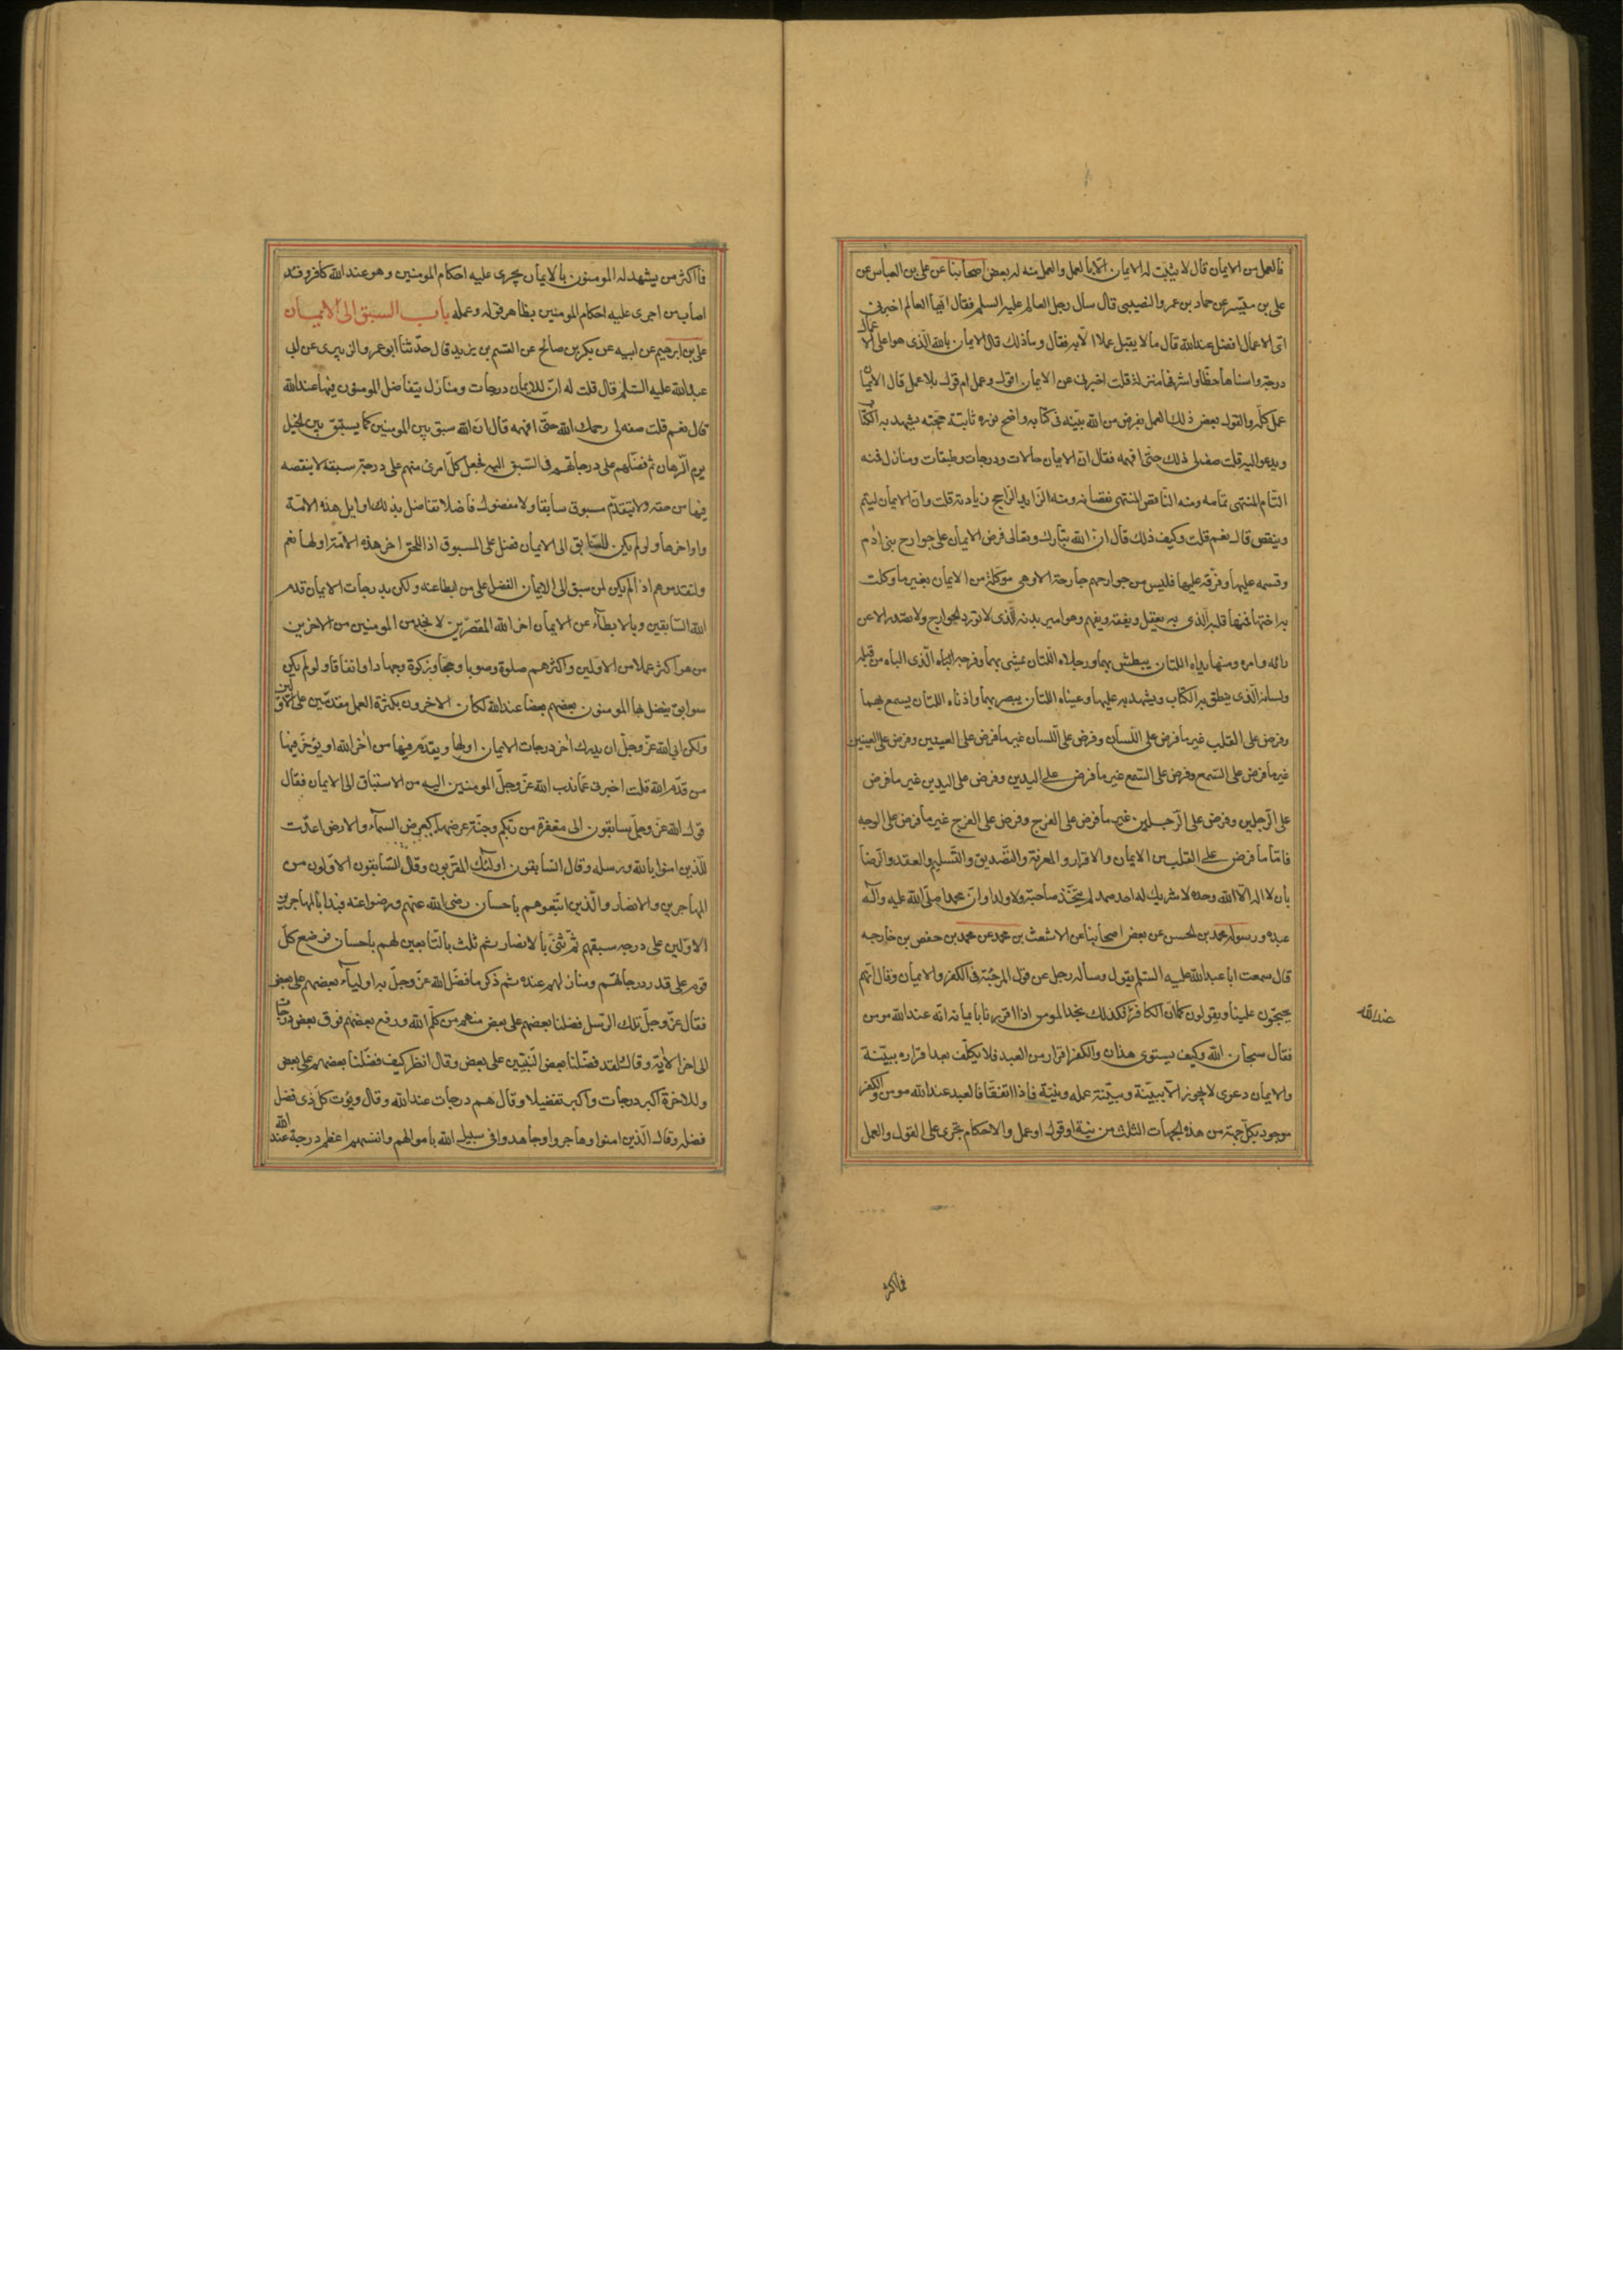 فالعمل من الايمان قال لا يثبت له الايمان الا بالعمل والعمل منه له بعض اصحابنا عن على بن العباس عن
على بن ميسر عن حماد بن عمرو النصيبى قال سال رجل العالم عليه السلم فقال ايها العالم اخبرنى
اى الاعمال افضل عند الله قال ما لا يقبل عملا الا به فقال وما ذلك قال الايمان بالله الذى هو اعلى الاعمال
درجة واسناها حظا واشرفها منزلة قلت اخبرنى عن الايمان اقول وعمل ام قول بلا عمل قال الايمان
عمل كله والقول بعض ذلك العمل بفرض من الله بينه فى كتابه واضح نوره ثابتة حجته يشهد به الكتاب
ويدعو اليه قلت صف لى ذلك حتى افهمه فقال ان الايمان حالات ودرجات وطبقات ومنازل فمنه
التام المنتهى تمامه ومنه الناقص المنتهى نقصانه ومنه الزايد الراجح زيادته قلت وان الايمان ليتم
وينقص قال نعم قلت وكيف ذلك قال ان الله تبارك وتعالى فرض الايمان على جوارح بنى آدم
وقسمه عليها وفرقه عليها فليس من جوارحهم جارحة الا وهى موكلة من الايمان بغير ما وكلت
به اختها فمنها قلبه الذى به يعقل ويفقه ويفهم وهو امير بدنه الذى لا تورد الجوارح ولا تصدر الا عن
رائه وامره ومنها يداه اللتان يبطش بهما ورجلاه اللتان يمشى بهما وفرجه الباه الذى الباه من قبله
ولسانه الذى ينطق به الكتاب ويشهد به عليها وعيناه اللتان يبصر بهما واذناه اللتان يسمع بهما
وفرض على القلب غير ما فرض على اللسان وفرض على اللسان غير ما فرض على العينين وفرض على العينين
غير ما فرض على السمع وفرض على السمع غير ما فرض على اليدين وفرض على اليدين غير ما فرض
على الرجلين وفرض على الرجلين غير ما فرض على الفرج وفرض على الفرج غير ما فرض على الوجه
فاما ما فرض على القلب من الايمان والاقرار والمعرفة والتصديق والتسليم والعقد والرضا
بان لا اله الا الله وحده لا شريك له احد صمد لم يتخذ صاحبة ولا ولدا وان محمدا صلى الله عليه وآله
عبده ورسوله محمد بن الحسن عن بعض اصحابنا عن الاشعث بن محمد عن محمد بن حفص بن خارجه
قال سمعت ابا عبد الله عليه السلم يقول وساله رجل عن قول المرجئة فى الكفر والايمان وقال انهم
يحتجون علينا ويقولون كما ان الكافر عندنا هو الكافر
عند الله
فكذلك نجد المومن اذا اقر بايمانه انه عند الله مومن
فقال سبحان الله وكيف يستوى هذان والكفر اقرار من العبد فلا يكلف بعد اقراره ببينة
والايمان دعوى لا يجوز الا ببينة وبينته عمله ونيته فاذا اتفقا فالعبد عند الله مومن والكفر
موجود بكل جهة من هذه الجهات الثلث من نية او قول او عمل والاحكام تجرى على القول والعمل
فما اكثر
فما اكثر من يشهد له المومنون بالايمان يجرى عليه احكام المومنين وهو عند الله كافر وقد
اصاب من اجرى عليه احكام المومنين بظاهر قوله وعمله باب السبق الى الايمان
على بن ابرهيم عن ابيه عن بكر بن صالح عن القسم بن يزيد قال حدثنا ابو عمرو الزبيرى عن ابى
عبد الله عليه السلم قال قلت له ان للايمان درجات ومنازل يتفاضل المومنون فيها عند الله
قال نعم قلت صفه لى رحمك الله حتى افهمه قال ان الله سبق بين المومنين كما يسبق بين الخيل
يوم الرهان ثم فضلهم على درجاتهم فى السبق اليه فجعل كل امرئ منهم على درجة سبقه لا ينقصه
فيها من حقه ولا يتقدم مسبوق سابقا ولا مفضول فاضلا تفاضل بذلك اوايل هذه الامة
واواخرها ولو لم يكن للسابق الى الايمان فضل على المسبوق اذا للحق اخر هذه الامة اولها نعم
ولتقدموهم اذا لم يكن لمن سبق الى الايمان الفضل على من ابطا عنه ولكن بدرجات الايمان قدم
الله السابقين وبالابطاء عن الايمان اخر الله المقصرين لانا نجد من المومنين من الاخرين
من هو اكثر عملا من الاولين واكثرهم صلوة وصوما وحجا وزكوة وجهادا وانفاقا ولو لم يكن
سوابق يفضل بها المومنون بعضهم بعضا عند الله لكان الاخرون بكثرة العمل مقدمين على الاولين
ولكن ابى الله عز وجل ان يدرك آخر درجات الايمان اولها ويقدم فيها من اخر الله او يؤخر فيها
من قدم الله قلت اخبرنى عما ندب الله عز وجل المومنين اليه من الاستباق الى الايمان فقال
قول الله عز وجل سابقون الى مغفرة من ربكم وجنة عرضها كعرض السماء والارض اعدت
للذين امنوا بالله ورسله وقال السابقون اولئك المقربون وقال السابقون الاولون من
المهاجرين والانصار والذين اتبعوهم باحسان رضى الله عنهم ورضوا عنه فبدا بالمهاجرين
الاولين على درجه سبقهم ثم ثنى بالانصار ثم ثلث بالتابعين لهم باحسان فوضع كل
قوم على قدر درجاتهم ومنازلهم عنده ثم ذكر ما فضل الله عز وجل به اولياءه بعضهم على بعض
فقال عز وجل تلك الرسل فضلنا بعضهم على بعض منهم من كلم الله ورفع بعضهم فوق بعض درجات
الى اخر الاية وقال لقد فضلنا بعض النبيين على بعض وقال انظر كيف فضلنا بعضهم على بعض
وللاخرة اكبر درجات واكبر تفضيلا وقال هم درجات عند الله وقال ويؤت كل ذى فضل
فضله وقال الذين امنوا وهاجروا وجاهدوا فى سبيل الله باموالهم وانفسهم اعظم درجة عند الله